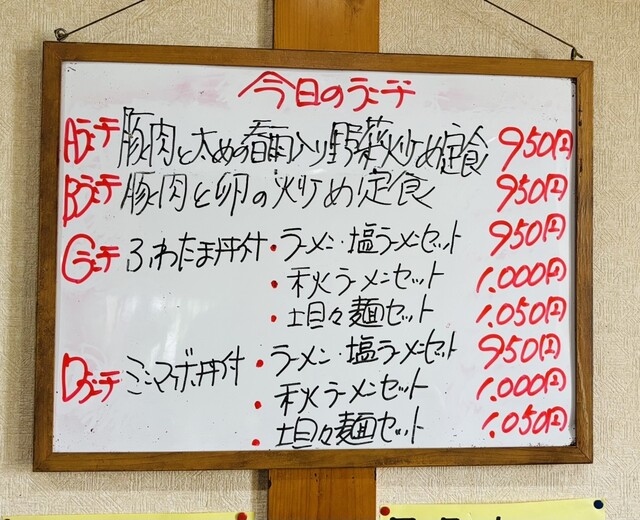 今日のランチ
Aランチ 豚肉と太めの春雨入り野菜炒め定食 950円
Bランチ 豚肉と卵の炒め定食 950円
Cランチ ふわたま丼付 • ラーメン・塩ラーメンセット 950円
• 秋ラーメンセット 1.000円
• 坦々麺セット 1.050円
Dランチ ミニマーボ丼付 • ラーメン・塩ラーメンセット 950円
• 秋ラーメンセット 1.000円
• 坦々麺セット 1.050円